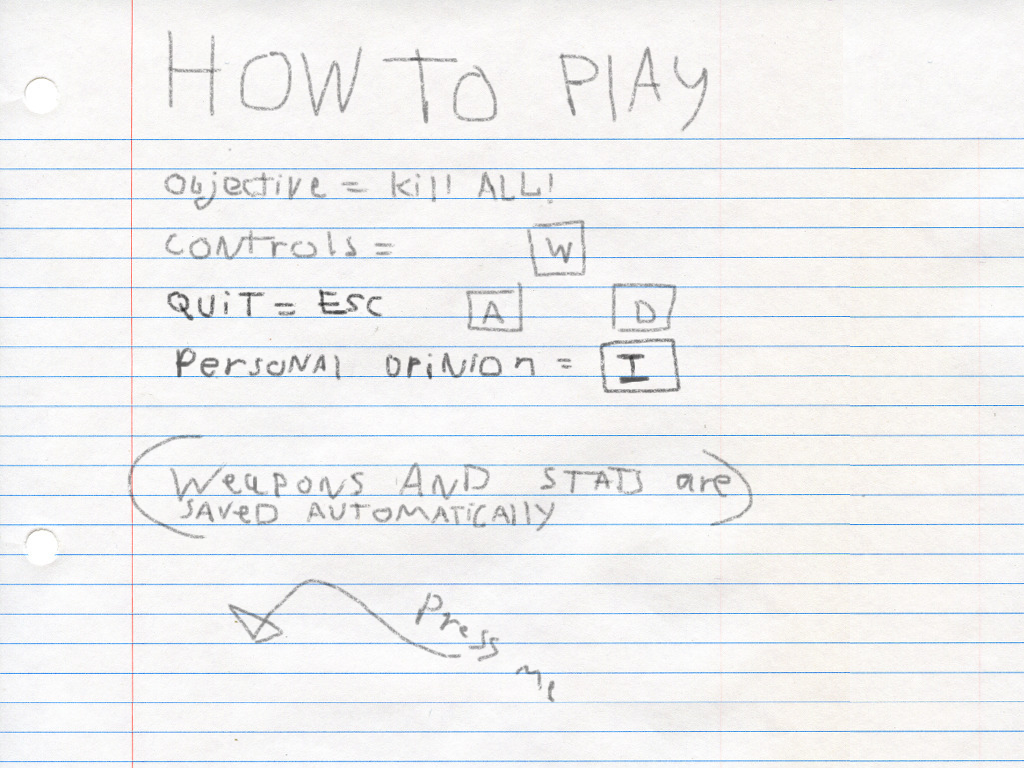 HOW TO PLAY
Objective = Kill ALL!
CONTrols = W
QUiT = ESC A D
PersoNAl OPiNiOn = I
(Weapons AND STATS are
SAVeD AUTOMATiCAllY)
Press
Me